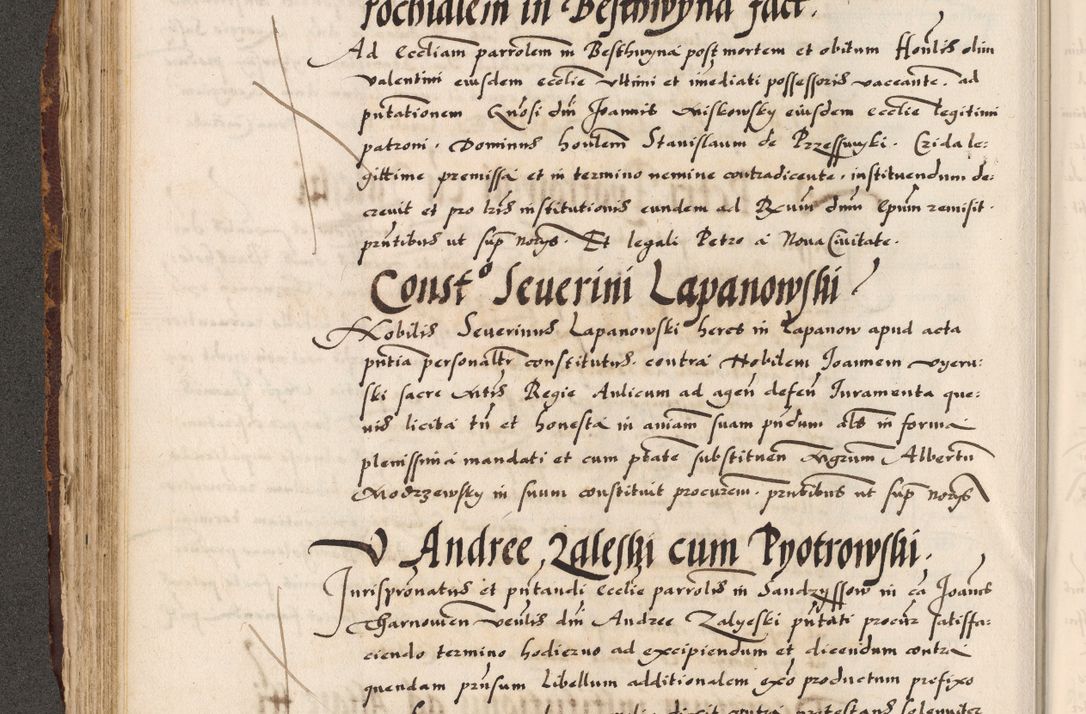 rochialem in Besthwyna fact.
Ad eccliam parrolem in Besthwyna post mortem et obitum Honlis olim
Valentini eiusdem ecclie ultimi et imediati possessoris vaccante. ad
pntationem Gnosi dni Joannis Miskowsky eiusdem ecclie legitimi
patroni. Dominus honlem Stanislaum de Przessuuyki. Crida le:
gittime premissa et in termino nemine contradicente, instituendum de:
creuit et pro lris institutionis eundem ad Rxum dnm Epum remisit.
pntibus ut sup notys. Et legali Petro a Nova Civitate.
Const⁰ Seuerini Lapanowski
Nobilis Seuerinus Lapanowski heres in Lapanow apud acta
pntia personalr constitutus contra Nobilem Joannem vyeru:
ski sacre Mtis Regie Aulicum ad agen defen Juramenta que:
uis licita tn et honesta in aniam suam pndum als in forma
plenissima mandati et cum ptate substituen Mgrum Albertu
Modrzewsky in suum constituit procurem. pntibus ut sup notys
V Andree Zaleski cum Pyotrowski.
Jurispronatus et pntandi ecclie parrolis in Sandzyssow in ca Joanes
Tharnowien venlis dni Andree Zalyeski pntati procur satisfa:
ciendo termino hodierno ad excipiendum et dicendum contra
quendam pnsum libellum additionalem exo productum prefixo